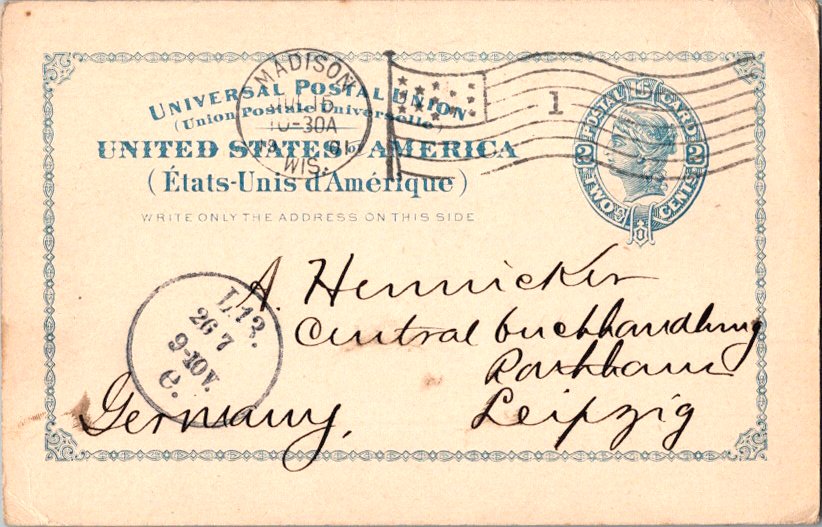 MADISON
JUL 16
10-30A
01
WIS.
1
UNIVERSAL POSTAL UNION
(Union Postale Universelle)
UNITED STATES of AMERICA
(États-Unis d'Amérique)
WRITE ONLY THE ADDRESS ON THIS SIDE
POSTAL CARD
2 2
TWO CENTS
L.13.
26 7
9-10V.
e.
A. Hennicker
Central buchhandlung
Leipzig
Germany.